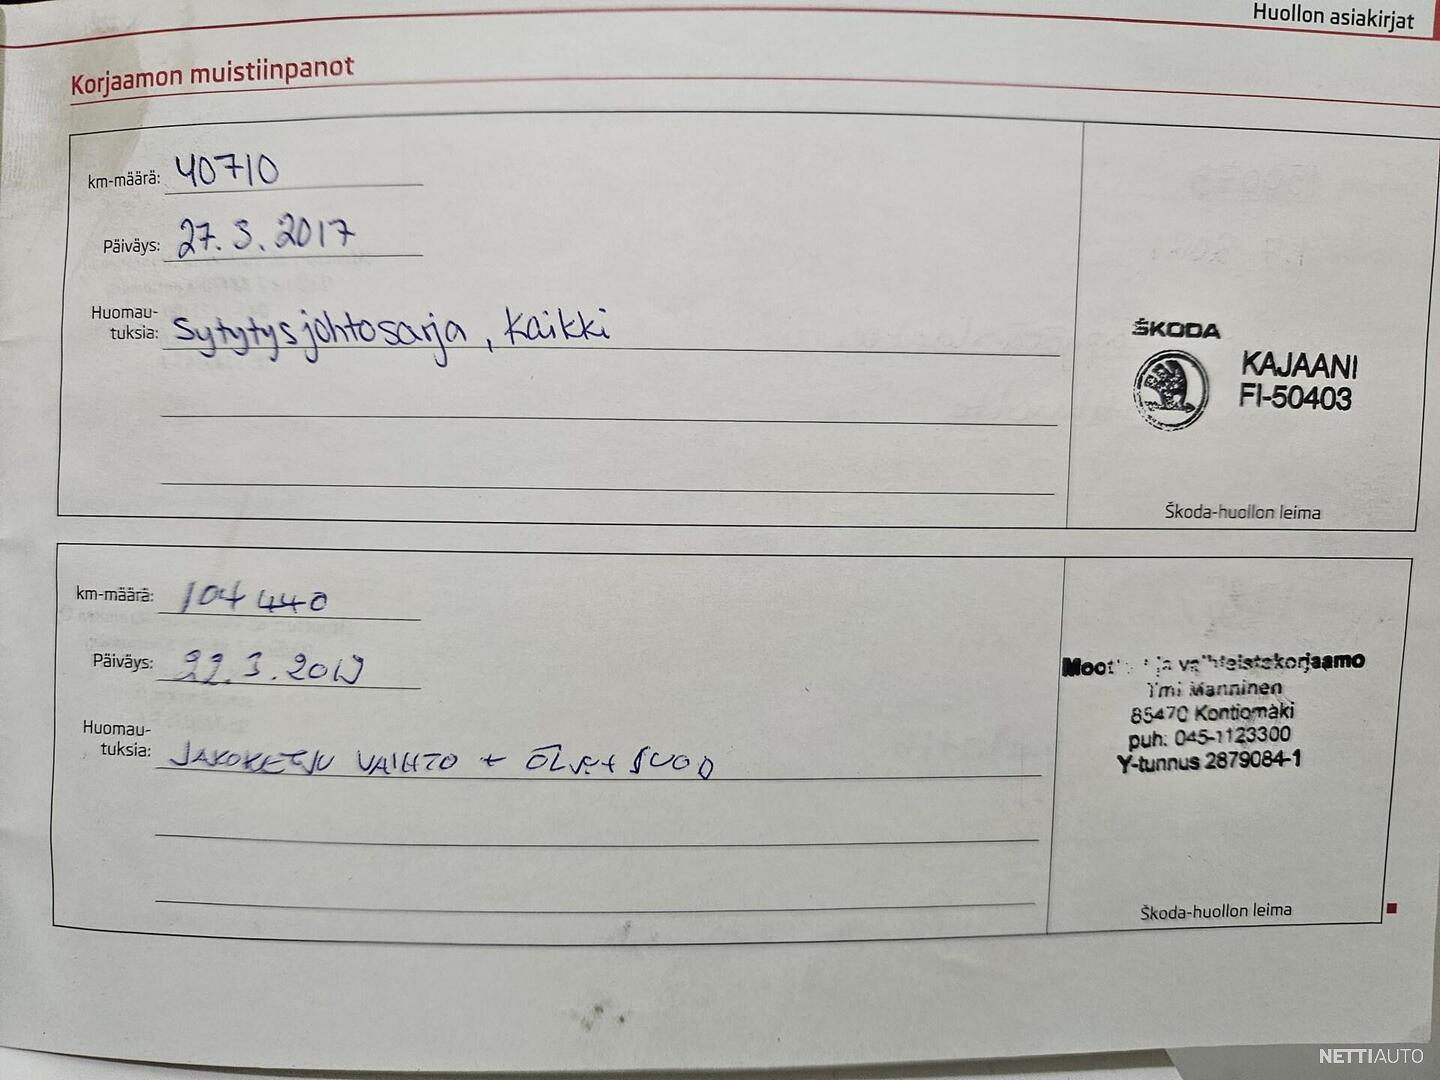 Huollon asiakirjat
Korjaamon muistiinpanot
km-määrä: 40710
Päiväys: 27.3.2017
Huomau-
tuksia: Sytytysjohtosarja, kaikki
ŠKODA
KAJAANI
FI-50403
Škoda-huollon leima
km-määrä: 104 440
Päiväys: 22.3.2019
Huomau-
tuksia: JAKOKETJU VAIHTO + ÖLJYT SUOD
Moottori ja vaihteistokorjaamo
Tmi Manninen
85470 Kontiomäki
puh. 045-1123300
Y-tunnus 2879084-1
Škoda-huollon leima
NETTIAUTO